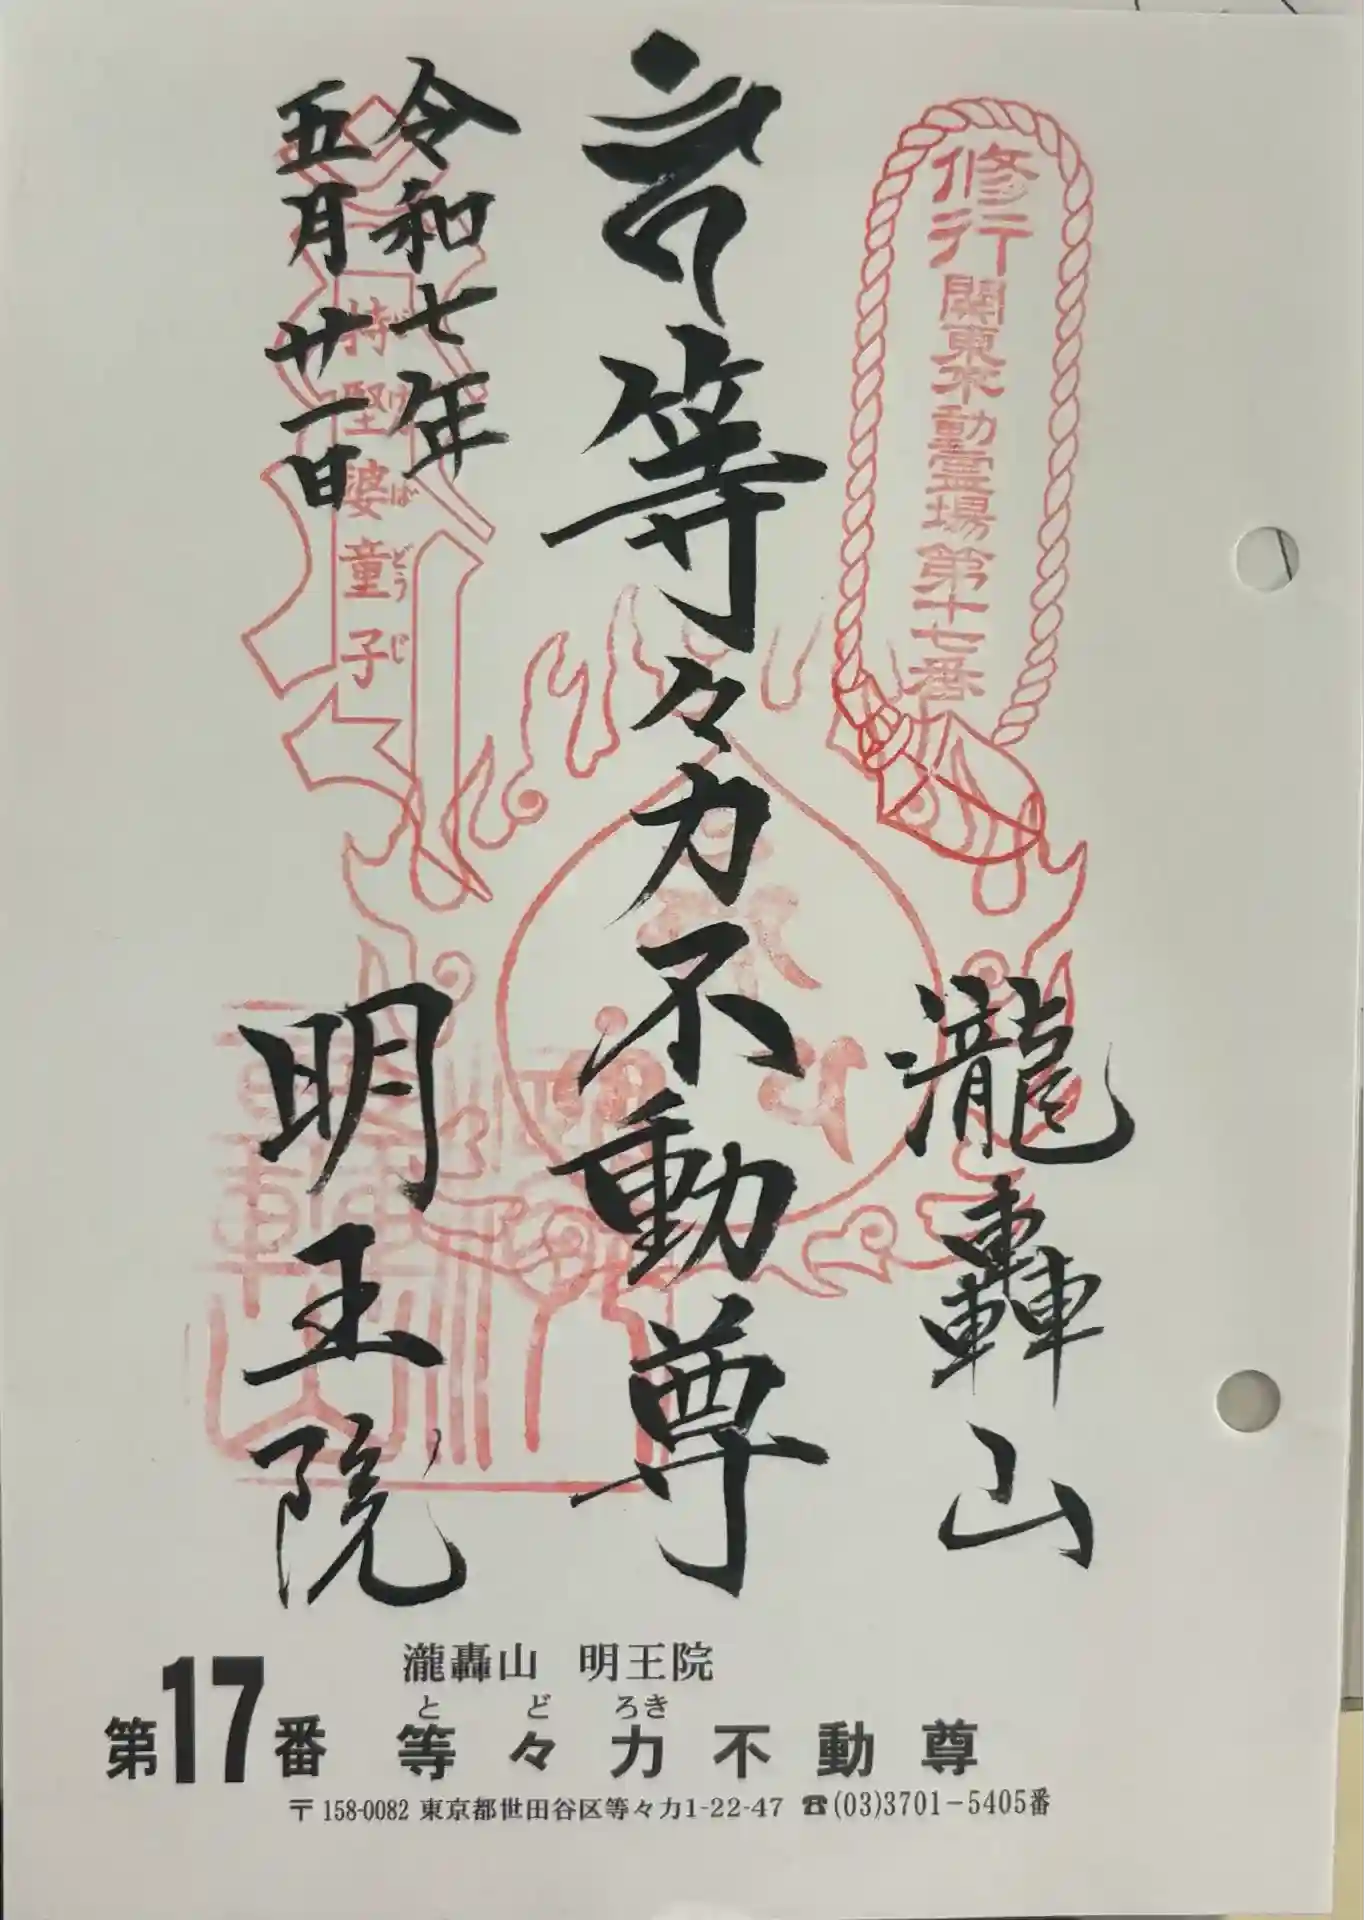 修行関東不動霊場第十七番
瀧轟山
等々力不動尊
令和七年
五月廿一日
持堅婆童子
けんばどうじ
明王院
瀧轟山 明王院
とどろき
第17番 等々力不動尊
〒158-0082 東京都世田谷区等々力1-22-47 ☎(03)3701-5405番